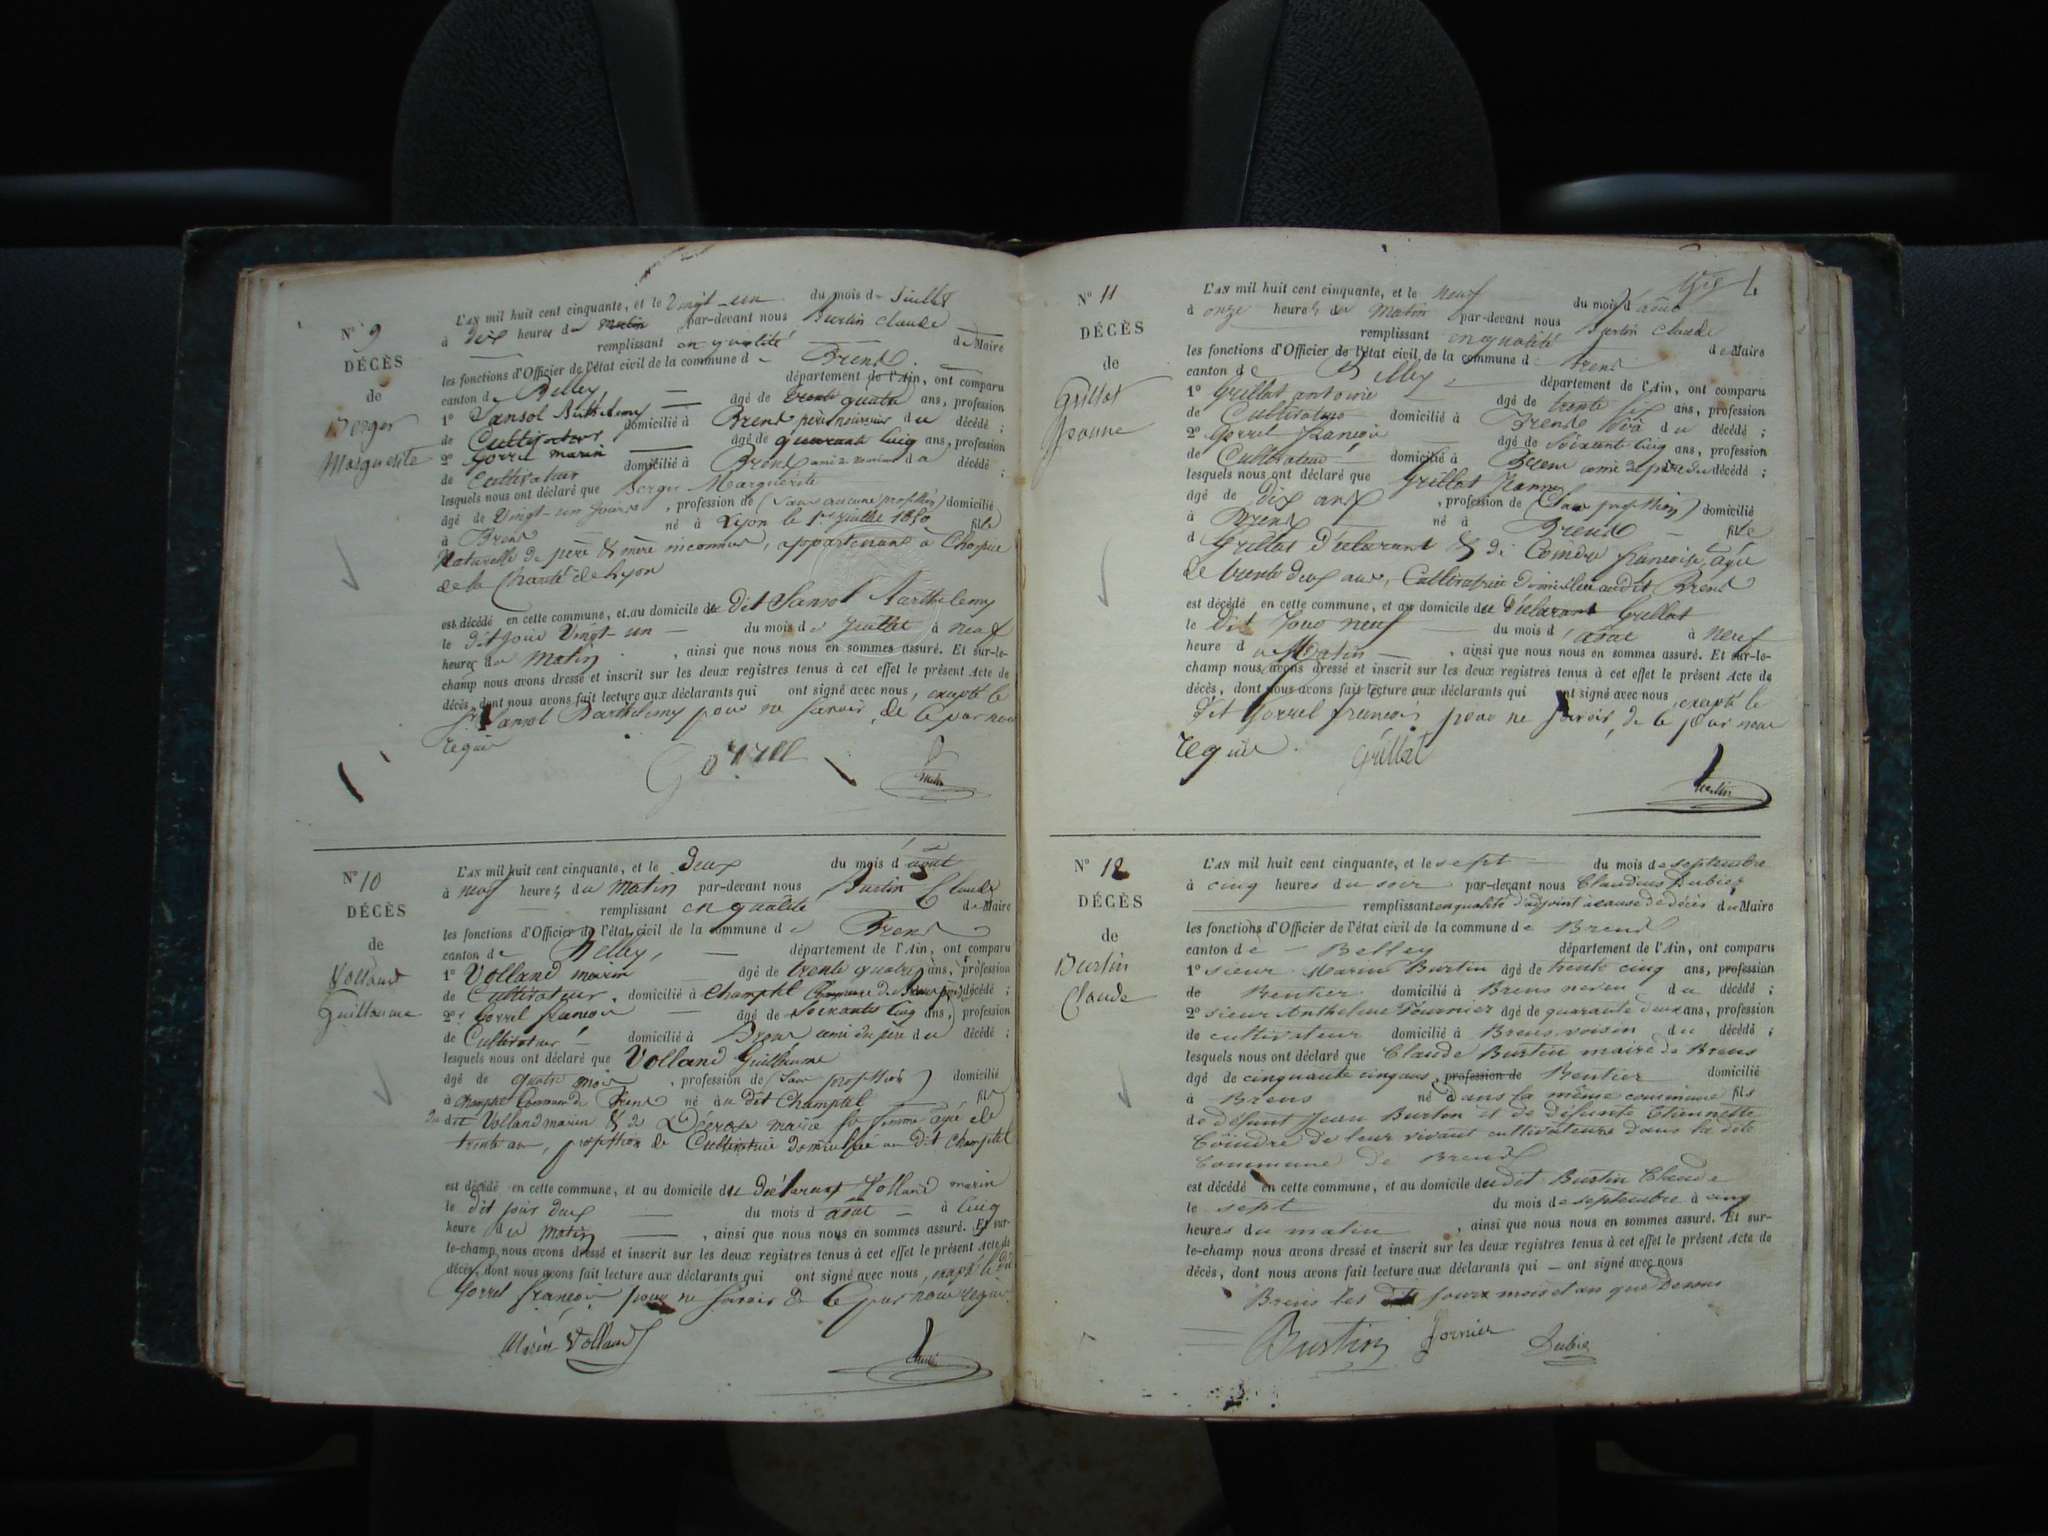 N° 9
DÉCÈS
de
Berger
Marguerite
L'AN mil huit cent cinquante, et le Vingt-un du mois de Juillet
à dix heures du matin par-devant nous Burtin Claude
remplissant en qualité de Maire
les fonctions d'Officier de l'état civil de la commune de Brens
canton de Belley, département de l'Ain, ont comparu
1° Sansot Barthelemy âgé de trente quatre ans, profession
de Cultivateur domicilié à Brens père nourricier du décédé ;
2° Gorrel marin âgé de quarante cinq ans, profession
de Cultivateur domicilié à Brens ami du décédé ;
lesquels nous ont déclaré que Berger Marguerite
âgé de Vingt-un jours, profession de (Sans aucune profession) domicilié
à Brens né à Lyon le 1er Juillet 1850 fille
Naturelle de père & mère inconnus, appartenant à l'hospice
de la Charité de Lyon
est décédé en cette commune, et au domicile du dit Sansot Barthelemy
le dit jour Vingt-un du mois de Juillet à neuf
heures du Matin, ainsi que nous nous en sommes assuré. Et sur-le-
champ nous avons dressé et inscrit sur les deux registres tenus à cet effet le présent Acte de
décès, dont nous avons fait lecture aux déclarants qui ont signé avec nous, excepté le
Sansot Barthelemy pour ne savoir, de ce par nous
requis
Gorrel
N° 10
DÉCÈS
de
Volland
Guillaume
L'AN mil huit cent cinquante, et le Deux du mois d'août
à neuf heures du Matin par-devant nous Burtin Claude
remplissant en qualité de Maire
les fonctions d'Officier de l'état civil de la commune de Brens
canton de Belley, département de l'Ain, ont comparu
1° Volland marin âgé de trente quatre ans, profession
de Cultivateur, domicilié à Champtel Commune de Brens père du décédé ;
2° Gorrel françois âgé de Soixante cinq ans, profession
de Cultivateur domicilié à Brens ami du père du décédé ;
lesquels nous ont déclaré que Volland Guillaume
âgé de quatre mois, profession de (Sans profession) domicilié
à Champtel Commune de Brens né au dit Champtel fils
du dit Volland marin & de Décrose marie sa femme âgée de
trente ans, profession de Cultivatrice domiciliée au dit Champtel
est décédé en cette commune, et au domicile du Déclarant Volland marin
le dit jour deux du mois d'août à Cinq
heure du Matin, ainsi que nous nous en sommes assuré. Et sur-
le-champ, nous avons dressé et inscrit sur les deux registres tenus à cet effet le présent Acte de
décès, dont nous avons fait lecture aux déclarants qui ont signé avec nous, excepté le dit
Gorrel françois pour ne savoir de ce par nous requis.
Marin Volland
N° 11
DÉCÈS
de
Grillat
Jeanne
L'AN mil huit cent cinquante, et le neuf du mois d'août
à onze heures du Matin par-devant nous Burtin Claude
remplissant en qualité de Maire
les fonctions d'Officier de l'état civil de la commune de Brens
canton de Belley département de l'Ain, ont comparu
1° Grillat antoine âgé de trente ans, profession
de Cultivateur domicilié à Brens père du décédé ;
2° Gorrel françois âgé de Soixante cinq ans, profession
de Cultivateur domicilié à Brens ami du père du décédé ;
lesquels nous ont déclaré que Grillat Jeanne
âgé de dix ans, profession de (Sans profession) domicilié
à Brens né à Brens fille
d Grillat déclarant & de Coindre françoise, âgée
de trente deux ans, Cultivatrice domiciliée audit Brens
est décédé en cette commune, et au domicile du déclarant Grillat
le dit Jour neuf du mois d'août à neuf
heure du Matin, ainsi que nous nous en sommes assuré. Et sur-le-
champ nous avons dressé et inscrit sur les deux registres tenus à cet effet le présent Acte de
décès, dont nous avons fait lecture aux déclarants qui ont signé avec nous, excepté le
dit Gorrel françois pour ne savoir, de ce par nous
requis.
Grillat
Burtin
N° 12
DÉCÈS
de
Burtin
Claude
L'AN mil huit cent cinquante, et le sept du mois de septembre
à cinq heures du soir par-devant nous Claudius Dubiez
remplissant en qualité d'adjoint à cause de décès du Maire
les fonctions d'Officier de l'état civil de la commune de Brens
canton de Belley département de l'Ain, ont comparu
1° sieur Marin Burtin âgé de trente cinq ans, profession
de Rentier domicilié à Brens neveu du décédé ;
2° sieur Anthelme Fournier âgé de quarante deux ans, profession
de cultivateur domicilié à Brens voisin du décédé ;
lesquels nous ont déclaré que Claude Burtin maire de Brens
âgé de cinquante cinq ans, profession de Rentier domicilié
à Brens né dans la même commune fils
de défunt Jean Burtin et de défunte Etiennette
Coindre de leur vivant cultivateurs dans la dite
Commune de Brens
est décédé en cette commune, et au domicile du dit Burtin Claude
le sept du mois de septembre à cinq
heures du matin, ainsi que nous nous en sommes assuré. Et sur-
le-champ nous avons dressé et inscrit sur les deux registres tenus à cet effet le présent Acte de
décès, dont nous avons fait lecture aux déclarants qui ont signé avec nous
Brens les dits jours mois et an que Dessus
Burtin fornier Dubie